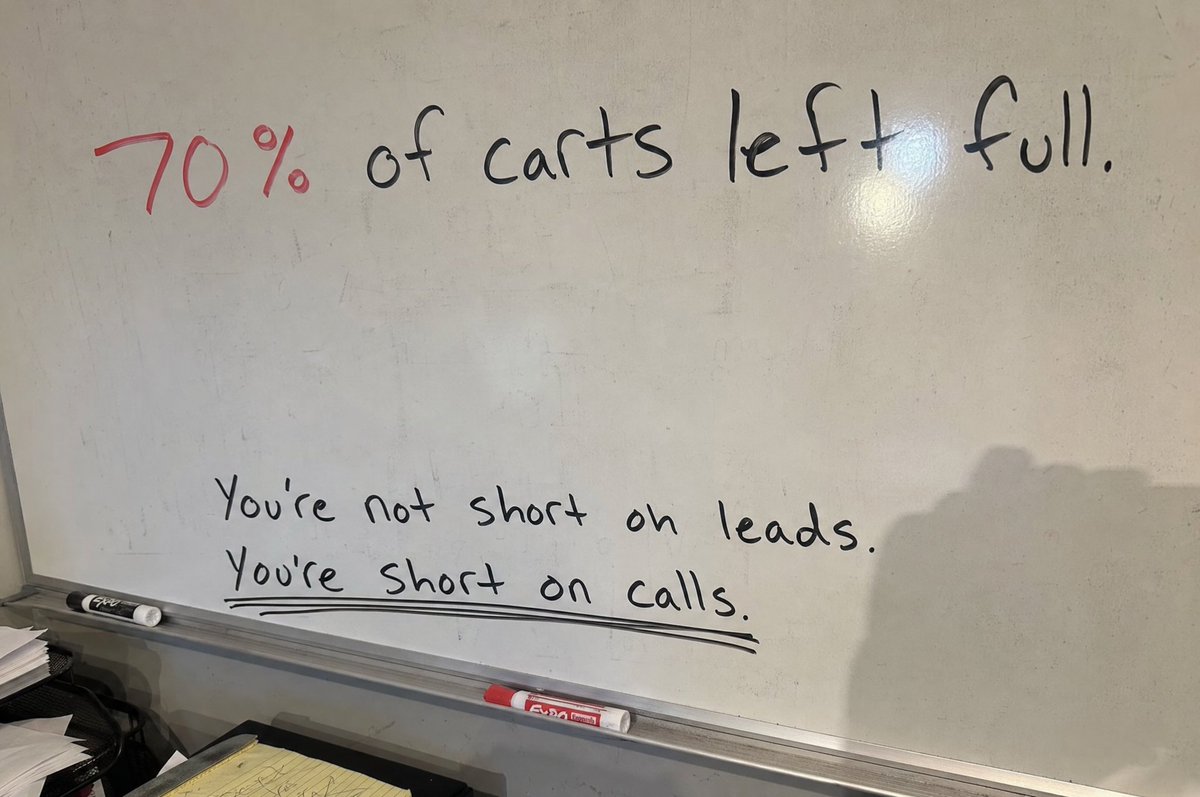 70% of carts left full.
You're not short on leads.
You're short on calls.
EXPO
EXPO